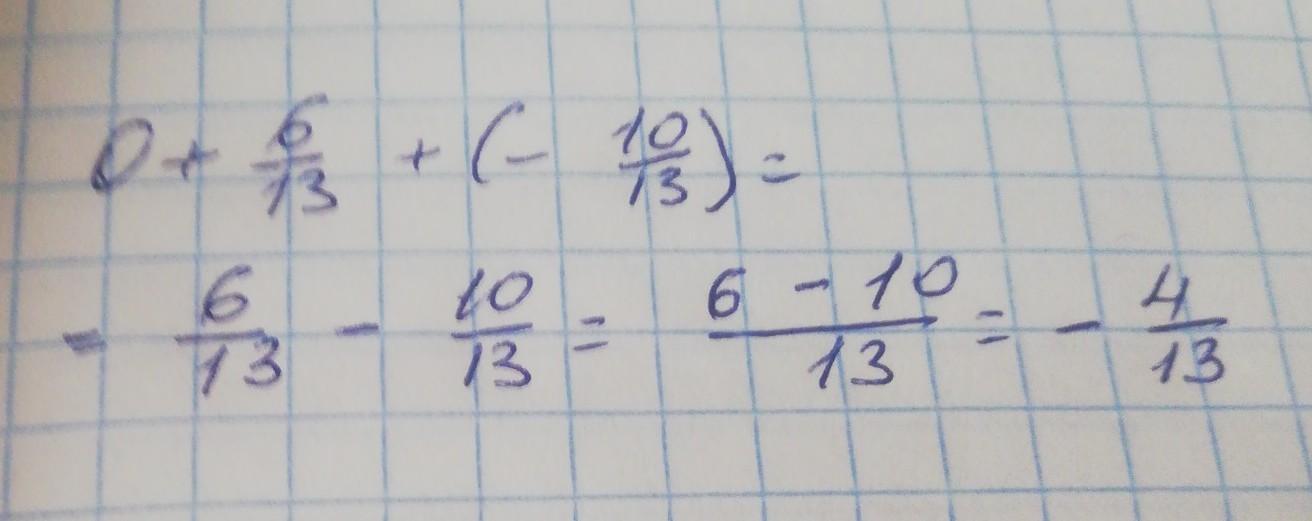 0 + 6/13 + (- 10/13) =
= 6/13 - 10/13 = (6 - 10)/13 = - 4/13